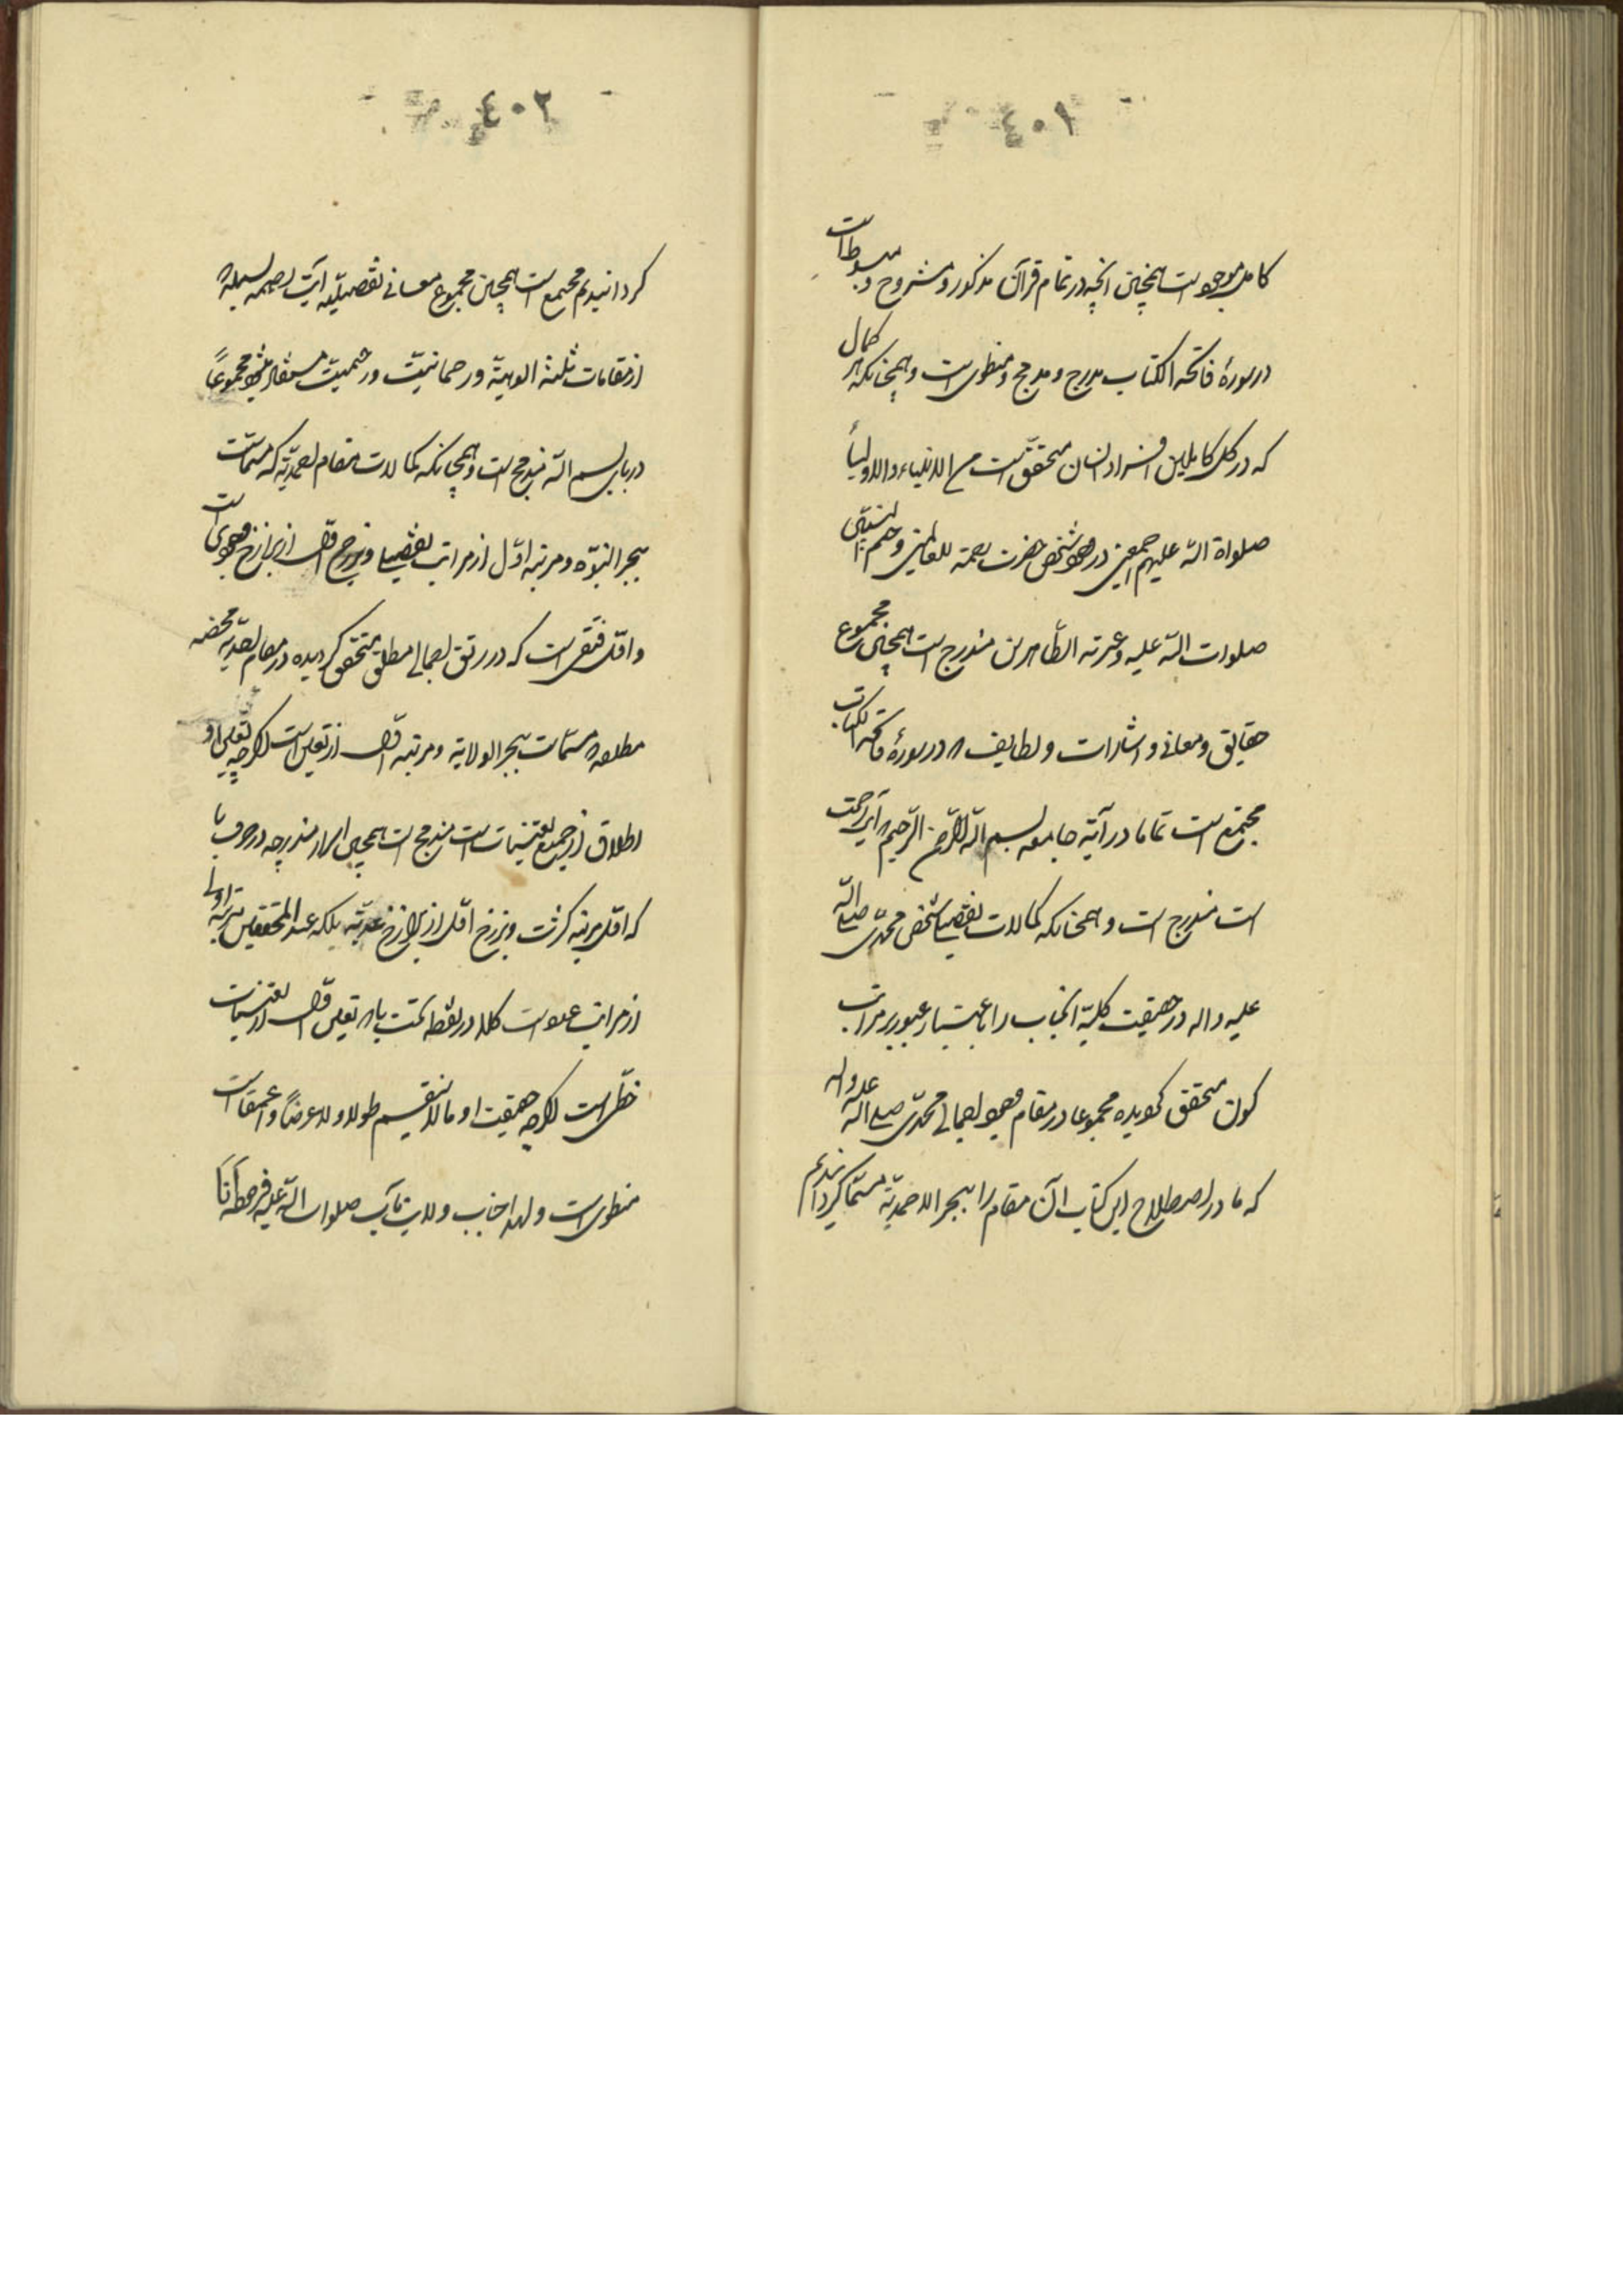 ٤٠١
کامل موجود است همچنین انچه در تمام قرآن مذکور و مشروح و مبسوط است
در سورهٔ فاتحه الکتاب مدرج و مدمج و منطوی است و همچنانکه هر کمال
که در کل کاملین افراد انسان متحقق است من الانبیاء و الاولیاء
صلواة الله علیهم اجمعین در وجود شخص حضرت رحمة للعالمین و ختم النبیین
صلوات الله علیه و عترته الطاهرین مندرج است همچنین مجموع
حقایق و معانی و اشارات و لطایف که در سورهٔ فاتحه الکتاب
مجتمع است تماما در آیه جامعه بسم الله الرحمن الرحیم که آیه رحمت
است مندرج است و همچنانکه کمالات تفصیلی شخص محمدی صلی الله
علیه و اله در حقیقت کلیه انجناب را باعتبار عبور بر مراتب
کون متحقق گردیده مجموعا در مقام وجود اجمالی محمدی صلی الله علیه و اله
که ما در اصطلاح این کتاب آن مقام را ببحر الاحمدیة مسمّا گردانیدیم
٤٠٢
گردانیدیم مجتمع است همچنین مجموع معانی تفصیلیه آیت رحمه بسمله که
از مقامات ثلثه الوهیة و رحمانیت و رحیمیت مستفاد میشود مجموعاً
در بای بسم الله مندمج است و همچنانکه کمالات مقام احمدیة که مسمّات
ببحر النبوّه و مرتبه اوّل از مراتب تفصیلی و برزخ اوّل از برازخ وجودی است
و اوّل فتقی است که در رتق اجمالی مطلق متحقق گردیده در مقام احدیه محضه
مطلقه که مسمّات ببحر الولایة و مرتبه اوّل از تعین است اگرچه تعین او
اطلاق از جمیع تعینات است مندمج است همچنین اسرار مندرجه در حرف با
که اوّل مرتبه کثرت و برزخ اوّل از برازخ عددیه بلکه عند المحققین مرتبه اولی
از مراتب عدد است کلا در نقطه تحت باء که تعین اوّل از تعینات
خطی است اگرچه حقیقت او ما لا ینقسم طولا و لا عرضاً و لا عمقا است
منطوی است و لهذا جناب ولایت مآب صلوات الله علیه فرموده که انا